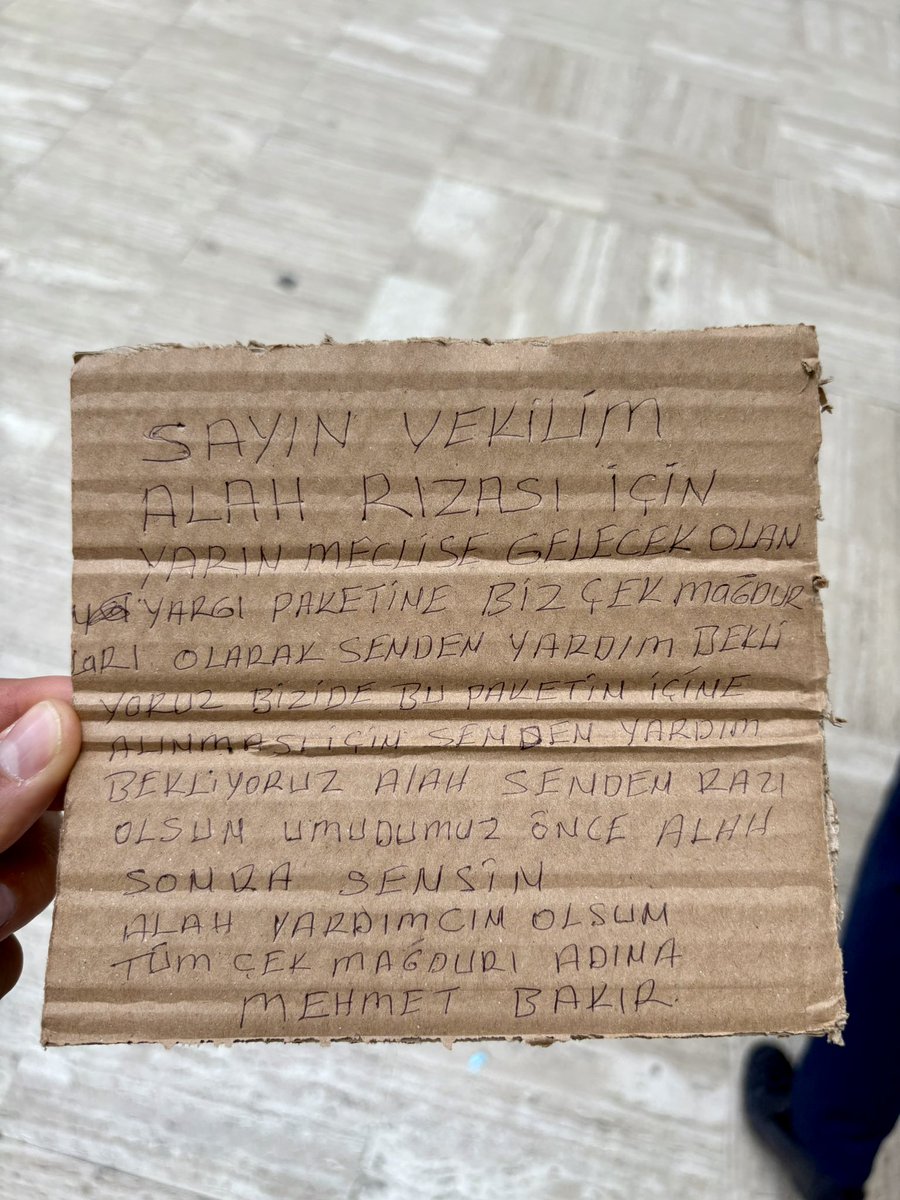 SAYIN VEKİLİM
ALAH RIZASI İÇİN
YARIN MECLİSE GELECEK OLAN
YARGI PAKETİNE BİZ ÇEK MAĞDUR
LARI. OLARAK SENDEN YARDIM BEKLİ
YORUZ BİZİDE BU PAKETİN İÇİNE
ALINMASI İÇİN SENDEN YARDIM
BEKLİYORUZ ALAH SENDEN RAZI
OLSUN UMUDUMUZ ÖNCE ALAH
SONRA SENSİN
ALAH YARDIMCIN OLSUN
TÜM ÇEK MAĞDURI ADINA
MEHMET BAKIR.